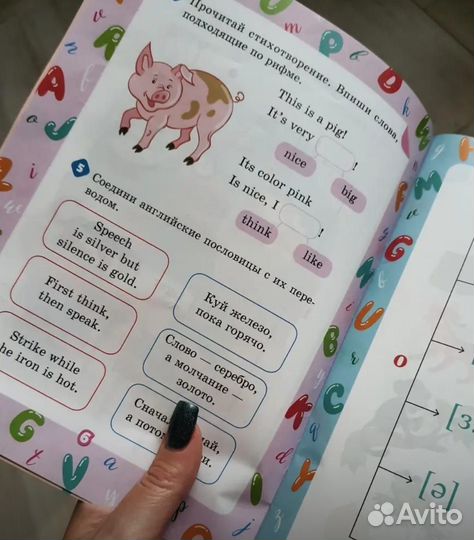 Прочитай стихотворение. Впиши слова,
подходящие по рифме.
This is a pig!
It's very !
nice
big
Its color pink
Is nice, I !
think
like
5
Соедини английские пословицы с их пере-
водом.
Speech
is silver but
silence is gold.
First think,
then speak.
Strike while
he iron is hot.
Куй железо,
пока горячо.
Слово — серебро,
а молчание —
золото.
Снача ай,
а пото и.
о
[ɜ
[ə]
Avito